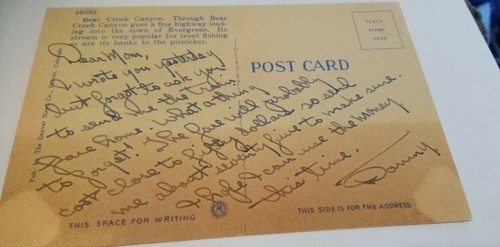 Bear Creek Canyon. Through Bear
Creek Canyon goes a fine highway lead-
ing into the town of Evergreen. Its
stream is very popular for trout fishing
as are its banks to the picnicker.
PLACE
STAMP
HERE
POST CARD
Dear Mom,
I wrote you yesterday
but forgot to ask you
to send me the train
fare home. What a thing
to forget! The fare will probably
cost close to fifty dollars so send
me about seventy five to make sure.
I hope I can use the money
this time.
Danny
THIS SPACE FOR WRITING
THIS SIDE IS FOR THE ADDRESS